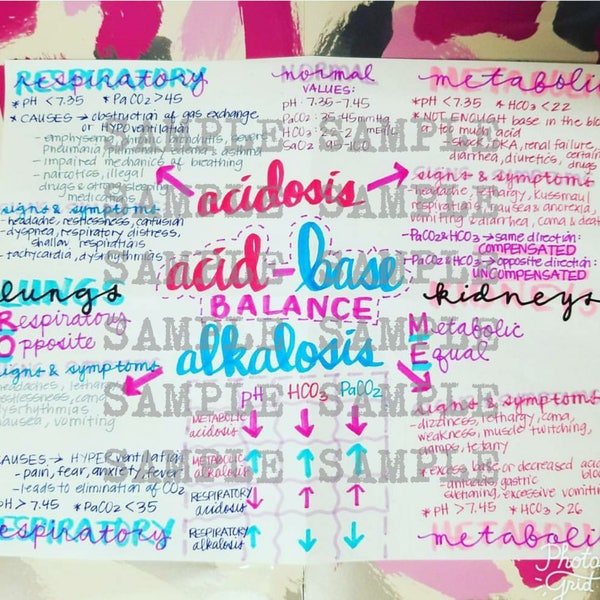 RESPIRATORY
respiratory
* pH < 7.35 * PaCO2 > 45
* CAUSES → obstruction of gas exchange
or HYPOventilation
- emphysema, chronic bronchitis, severe
pneumonia, pulmonary edema, asthma
- impaired mechanics of breathing
- narcotics, illegal
drugs & other sleeping
medications
signs & symptoms
- headache, restlessness, confusion
- dyspnea, respiratory distress,
shallow respirations
- tachycardia, dysrhythmias
NORMAL
normal
VALUES:
pH: 7.35-7.45
PaCO2: 35-45 mmHg
HCO3: 22-26 mEq/L
SaO2: 95-100
METABOLIC
metabolic
* pH < 7.35 * HCO3 < 22
* NOT ENOUGH base in the blood
or too much acid
- shock, DKA, renal failure,
diarrhea, diuretics, certain
drugs
signs & symptoms
- headache, lethargy, Kussmaul
respirations, nausea & anorexia,
vomiting & diarrhea, coma & death
- PaCO2 & HCO3 → same direction:
COMPENSATED
- PaCO2 & HCO3 → opposite direction:
UNCOMPENSATED
acidosis
acid-base
BALANCE
alkalosis
lungs
Respiratory
Opposite
kidneys
Metabolic
Equal
signs & symptoms
headaches, lethargy
restlessness,
dysrhythmias
nausea,
CAUSES → HYPERventilation
- pain, fear, anxiety, fever
- leads to elimination of CO2
pH > 7.45 * PaCO2 < 35
RESPIRATORY
respiratory
pH HCO3 PaCO2
METABOLIC acidosis ↓ ↓ ↓
METABOLIC alkalosis ↑ ↑ ↑
RESPIRATORY acidosis ↓ ↑ ↑
RESPIRATORY alkalosis ↑ ↓ ↓
signs & symptoms
- dizziness, lethargy, coma,
weakness, muscle twitching,
cramps, tetany
* excess base or decreased acid
- antacids, gastric
suctioning, excessive vomiting
* pH > 7.45 * HCO3 > 26
METABOLIC
metabolic
SAMPLE SAMPLE
SAMPLE SAMPLE
SAMPLE SAMPLE
SAMPLE SAMPLE
SAMPLE SAMPLE
SAMPLE SAMPLE
SAMPLE SAMPLE
Photo
Grid